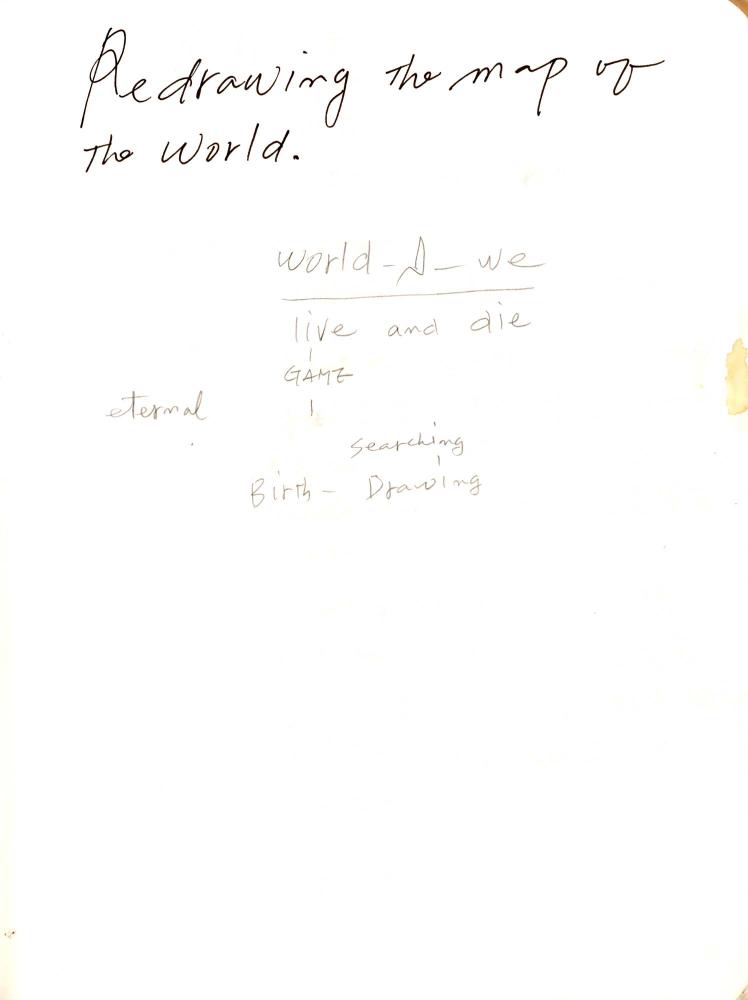 Redrawing the map of
the world.
world - I - we
live and die
GAME
eternal
searching
Birth - Drawing